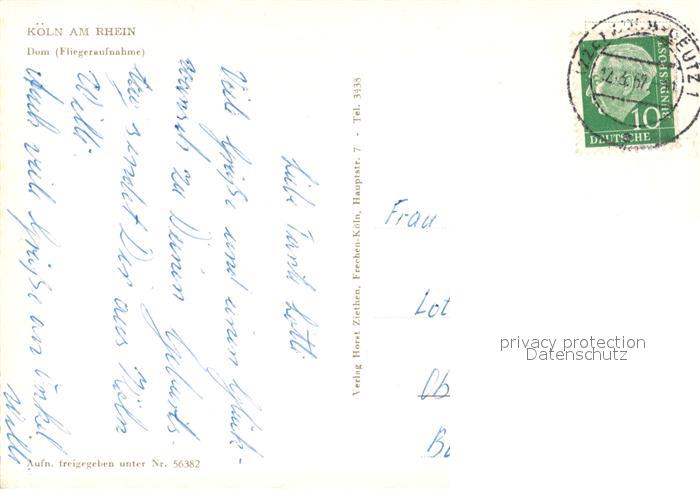 KÖLN AM RHEIN
Dom (Fliegeraufnahme)
Liebe Tante Lotti
Viele Grüße und einen Glück-
wunsch zu Deinem Geburts-
tag sendet Dir aus Köln
Willi
Auch viele Grüße an Onkel
Willi
Aufn. freigegeben unter Nr. 56382
Verlag Horst Ziethen, Frechen-Köln, Hauptstr. 7 - Tel. 3438
DEUTZ 1
10
DEUTSCHE
BUNDESPOST
Frau
Lot
Ob
Bu
privacy protection
Datenschutz